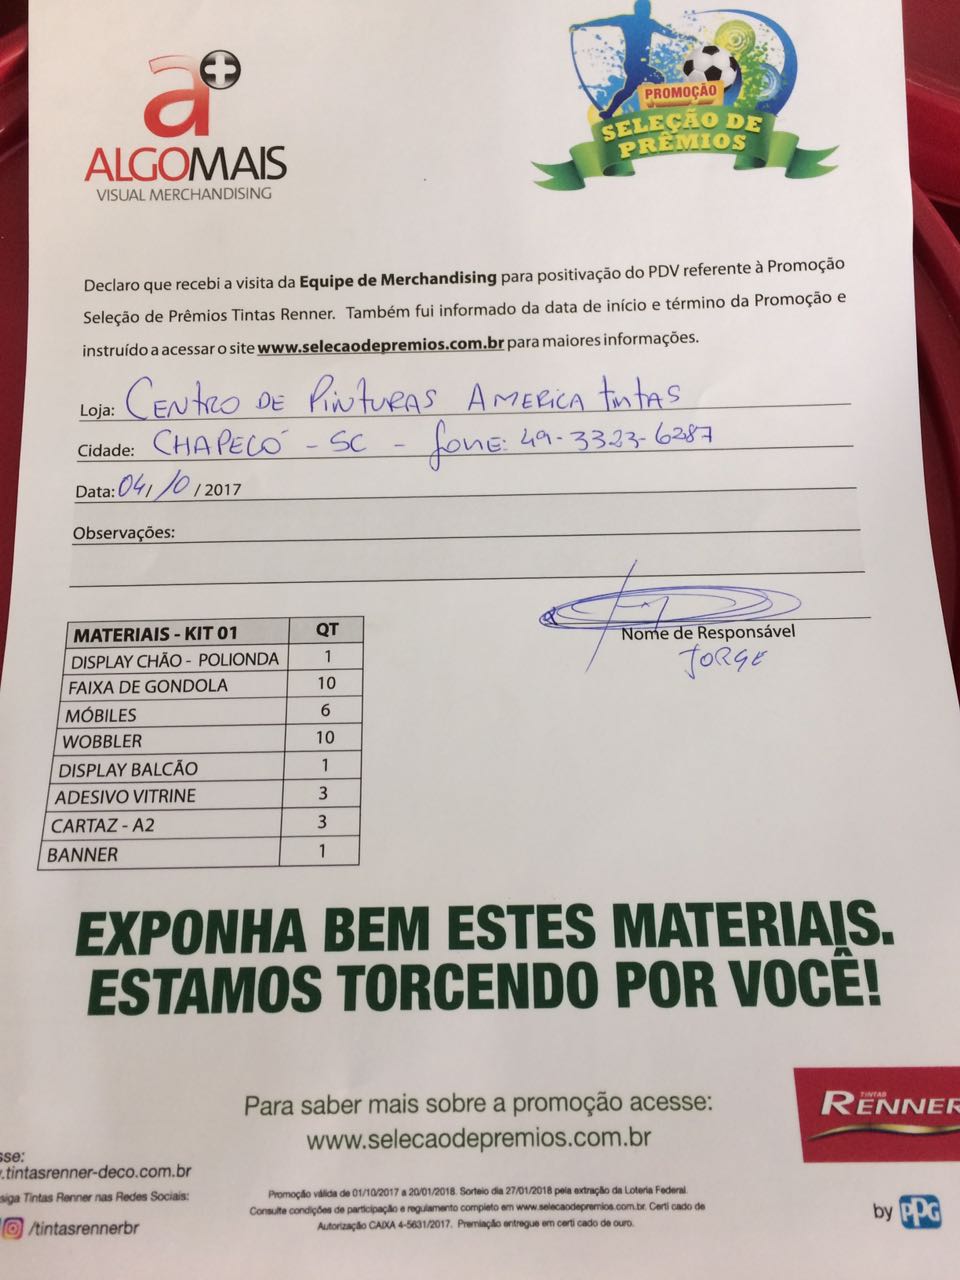 a+
ALGOMAIS
VISUAL MERCHANDISING
PROMOÇÃO
SELEÇÃO DE
PRÊMIOS
Declaro que recebi a visita da Equipe de Merchandising para positivação do PDV referente à Promoção
Seleção de Prêmios Tintas Renner. Também fui informado da data de início e término da Promoção e
instruído a acessar o site www.selecaodepremios.com.br para maiores informações.
Loja: CENTRO DE PINTURAS AMERICA TINTAS
Cidade: CHAPECÓ - SC - fone: 49-3323-6287
Data: 04/10/2017
Observações:
Nome de Responsável
JORGE
MATERIAIS - KIT 01 QT
DISPLAY CHÃO - POLIONDA 1
FAIXA DE GONDOLA 10
MÓBILES 6
WOBBLER 10
DISPLAY BALCÃO 1
ADESIVO VITRINE 3
CARTAZ - A2 3
BANNER 1
EXPONHA BEM ESTES MATERIAIS.
ESTAMOS TORCENDO POR VOCÊ!
Para saber mais sobre a promoção acesse:
www.selecaodepremios.com.br
TINTAS
RENNER
sse:
.tintasrenner-deco.com.br
siga Tintas Renner nas Redes Sociais:
/tintasrennerbr
Promoção válida de 01/10/2017 a 20/01/2018. Sorteio dia 27/01/2018 pela extração da Loteria Federal.
Consulte condições de participação e regulamento completo em www.selecaodepremios.com.br. Certi cado de
Autorização CAIXA 4-5631/2017. Premiação entregue em certi cado de ouro.
by PPG